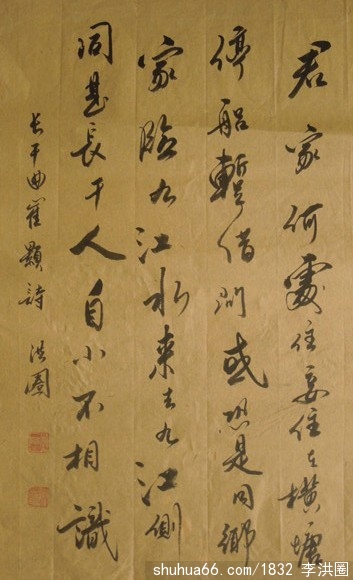 君家何處住妾住在橫塘
停船暫借問或恐是同鄉
家臨九江水來去九江側
同是長干人自小不相識
長干曲崔顥詩 洪圈
shuhua66.com/1832 李洪圈